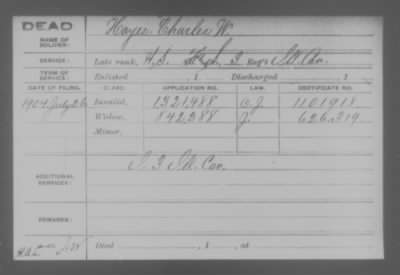 DEAD
NAME OF SOLDIER: Hayes Charles W.
SERVICE: Late rank, , 3 Reg't Ill Cav.
TERM OF SERVICE: Enlisted , 1 Discharged , 1
DATE OF FILING. CLASS. APPLICATION NO. LAW. CERTIFICATE NO.
1904 July 26 Invalid, 1321,488 C.J. 1101918.
Widow, 842,288 J. 626,319.
Minor,
ADDITIONAL SERVICES: S. 3 Ill Cav.
REMARKS:
Died , 1 , at